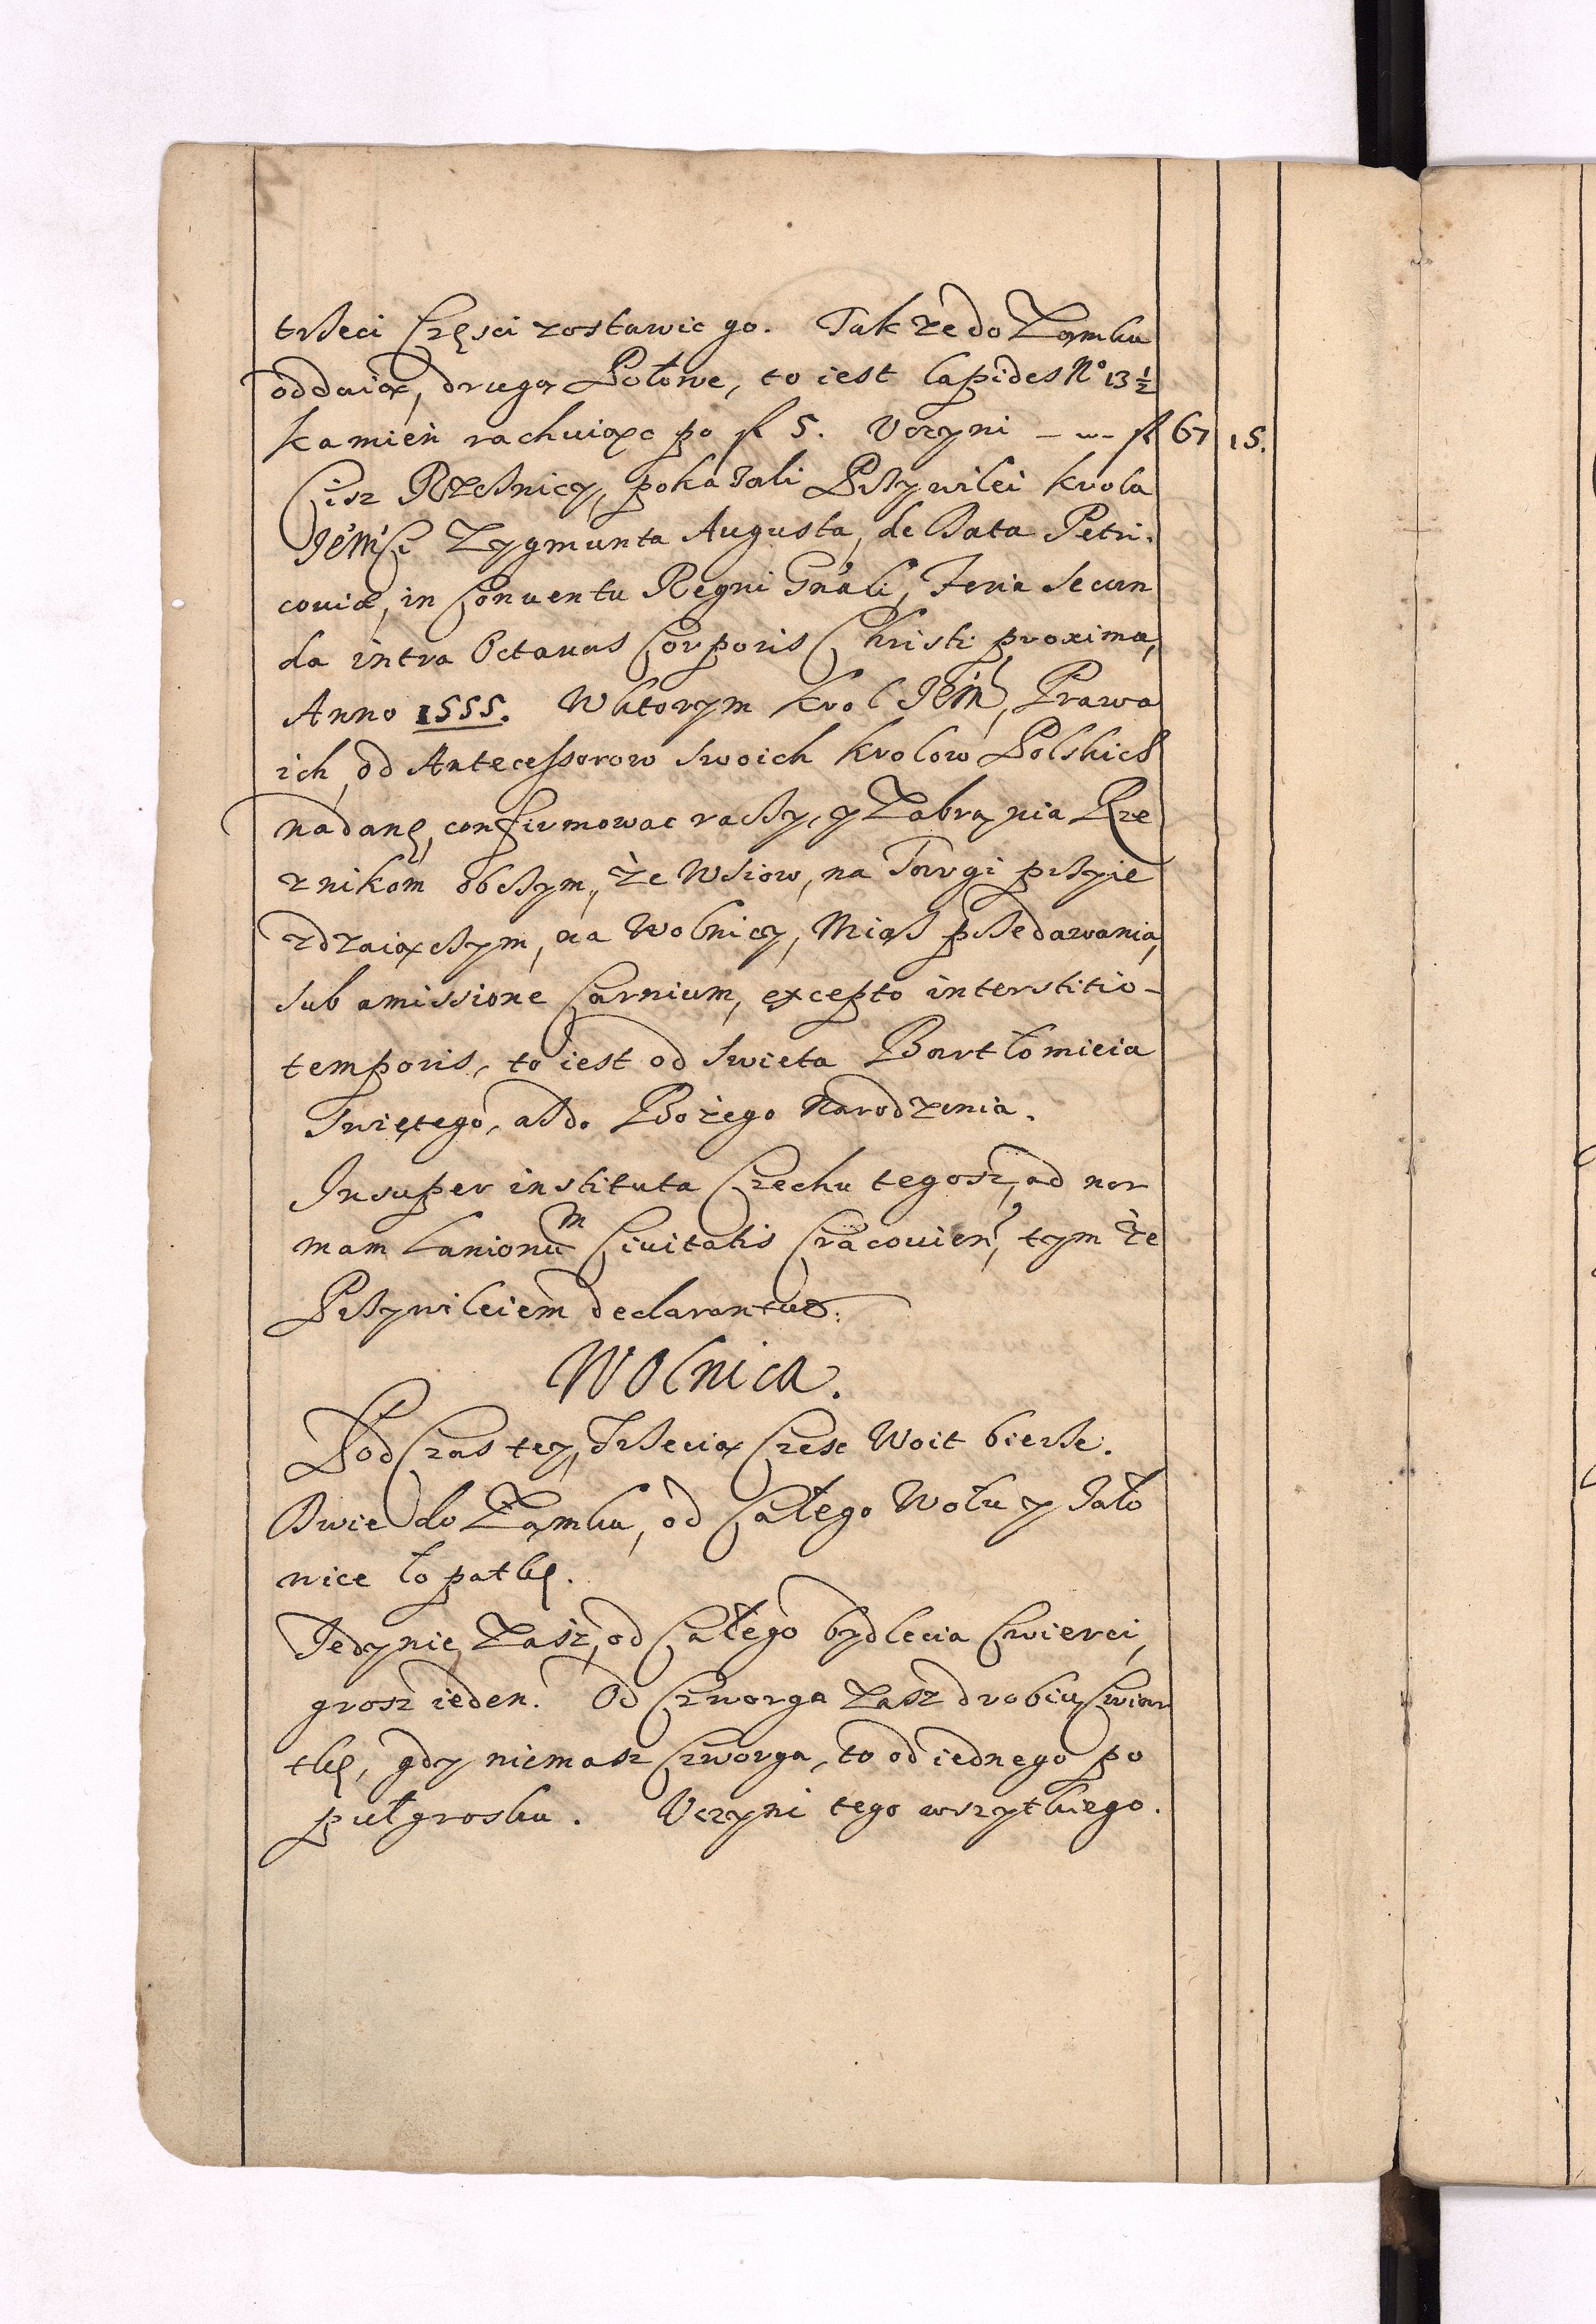 trzeci Częsci zostawic go. Tak ze do Zamku
oddaią, drugą Połowe, to iest lapides No 13 1/2
kamień rachuiąc po fl 5. Uczyni - - fl 67 15.
Cisz Rzeznicy, pokazali Przywilei krola
JeMści Zygmunta Augusta, de Data Petri-
couiæ, in Conuentu Regni Gnali, Feria Secun
da intra Octauas Corporis Christi proxima,
Anno 1555. W ktorym krol JeM, Prawa
ich, od Antecessorow swoich krolow Polskich
nadane, confirmowac raczy, y Zabrania Rze
znikom obczym, że Wsiow, na Targi przyie
zdzaiączym, na Wolnicy, Mias przedawania,
sub amissione Carnium, excepto interstitio-
temporis, to iest od swieta Bartłomieia
Swiętego, asz do Bożego Narodzenia.
Insuper instituta Czechu tegosz, ad nor
mam Lanionum Ciuitatis Cracouien, tym że
Przywileiem declarantur.
Wolnica.
Pod Czas tey, Trzecią Czesc Woit bierze.
Dwie do Zamku, od Całego Wołu y Jało
wice łopatkę.
Jedynie Zasz, od Całego bydlecia Cwierci,
grosz ieden. Od Czworga Zasz drobiu Cwiar
tkę, gdy niemasz Czworga, to od iednego po
pułgrosku. Uczyni tego wszytkiego.